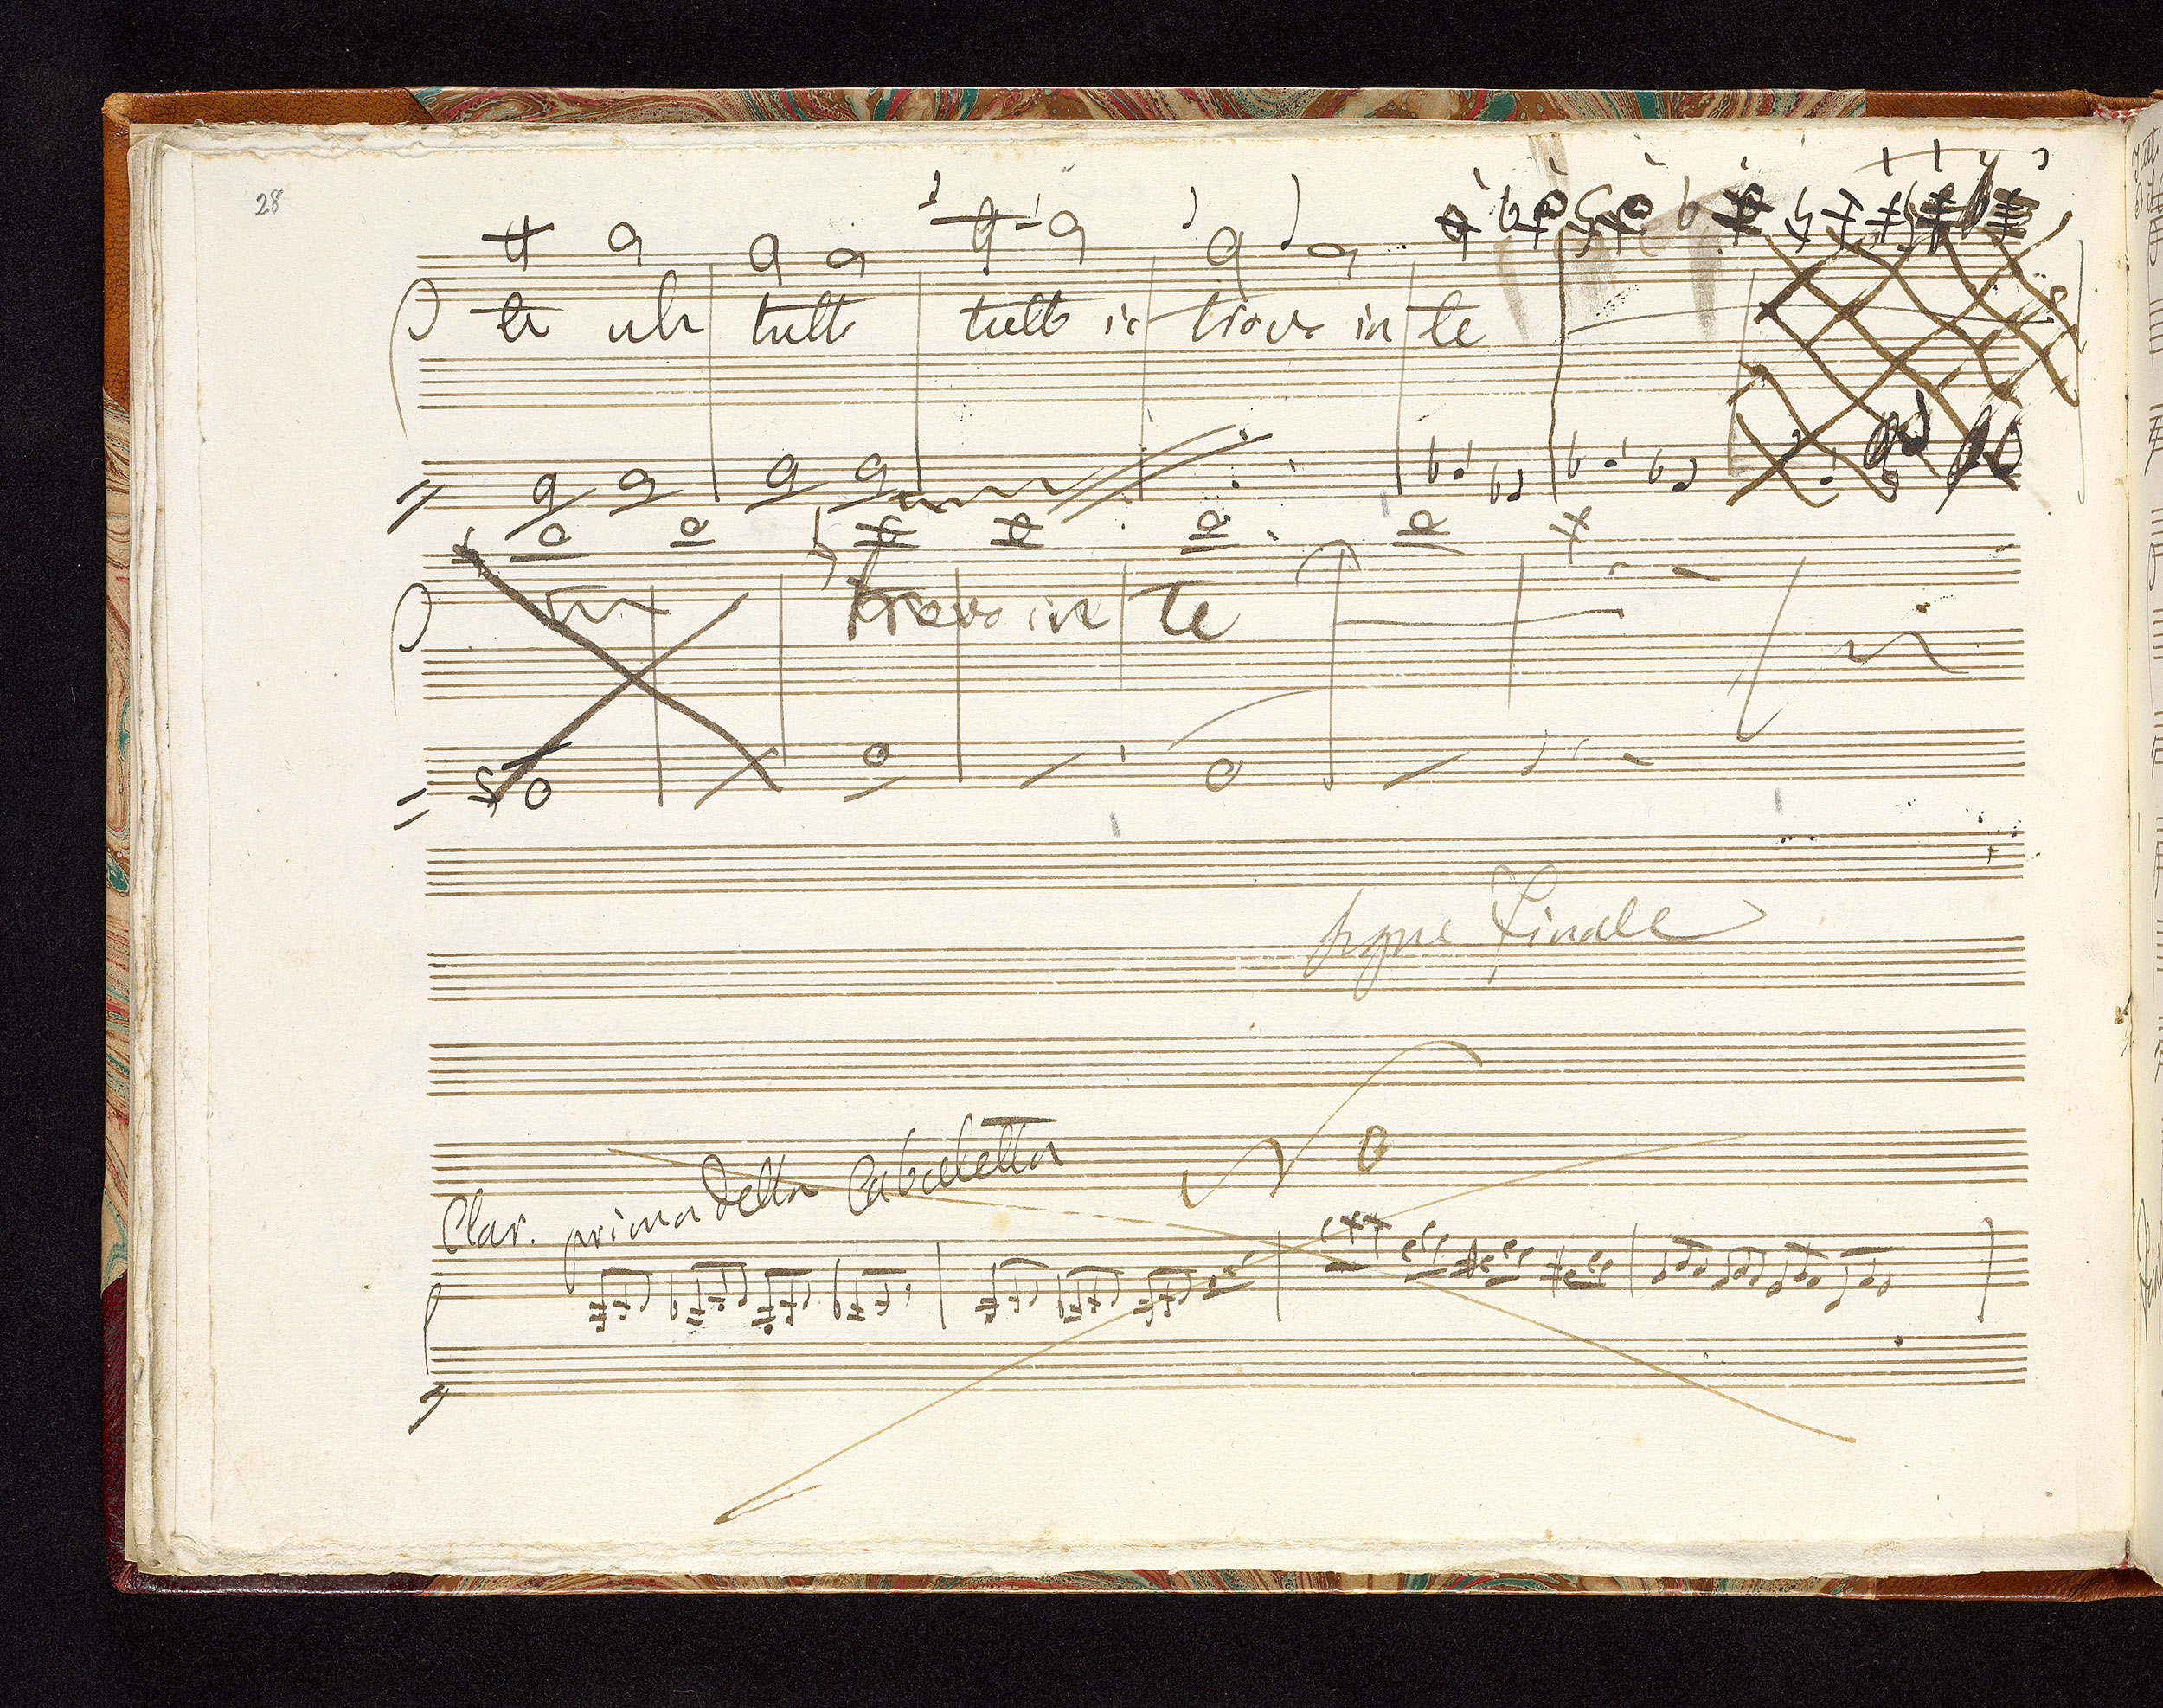 28
te tutto tutto io trovo in te
trovo in te
segue Finale
Clar. prima della Cabaletta